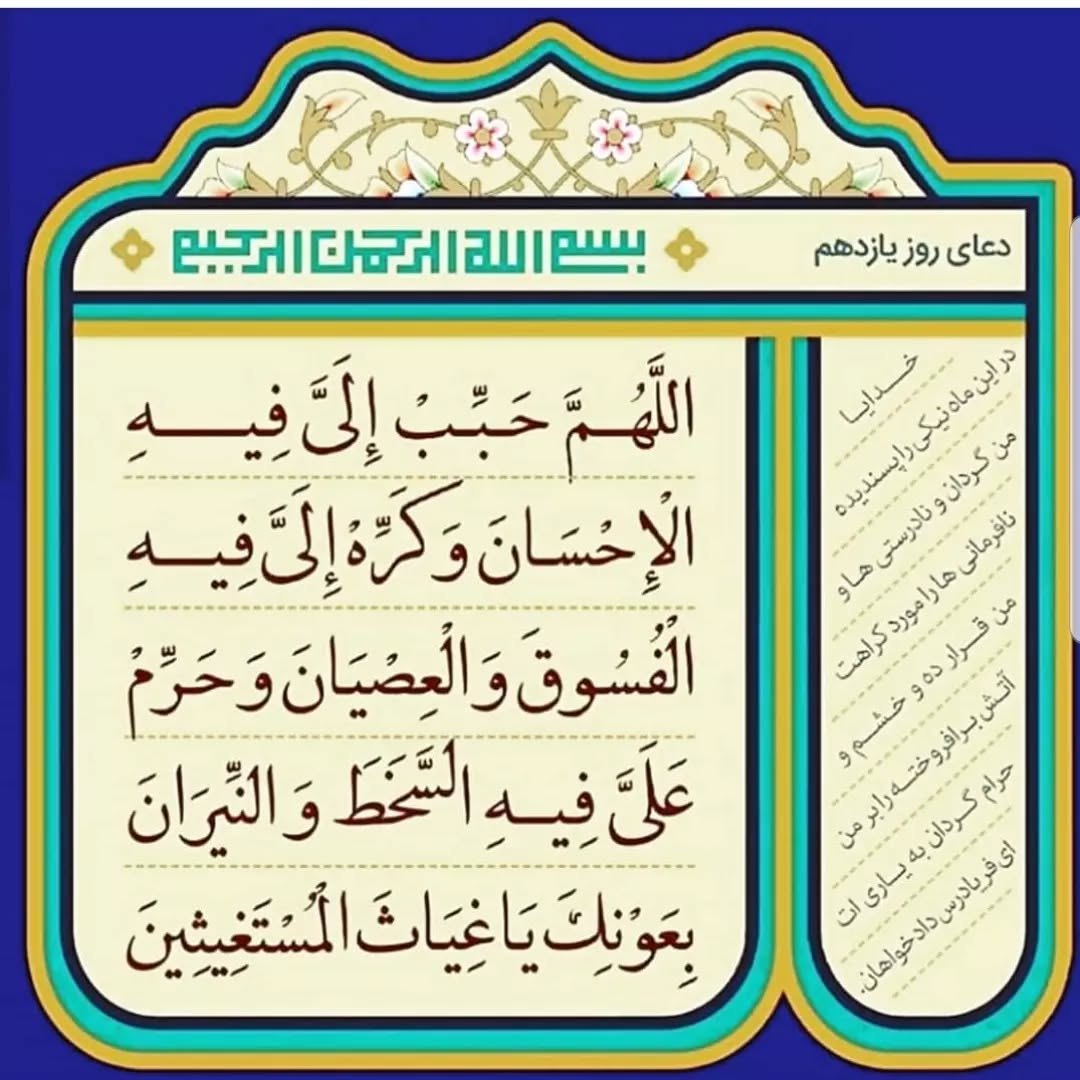 دعای روز یازدهم
بسم الله الرحمن الرحیم
اللَّهُمَّ حَبِّبْ إِلَيَّ فِيهِ
الْإِحْسَانَ وَ كَرِّهْ إِلَيَّ فِيهِ
الْفُسُوقَ وَ الْعِصْيَانَ وَ حَرِّمْ
عَلَيَّ فِيهِ السَّخَطَ وَ النِّيرَانَ
بِعَوْنِكَ يَا غِيَاثَ الْمُسْتَغِيثِينَ
خدایا
در این ماه نیکی را پسندیده
من گردان و نادرستی ها و
نافرمانی ها را مورد کراهت
من قرار ده و خشم و
آتش برافروخته را بر من
حرام گردان به یاری ات
ای فریادرس دادخواهان.